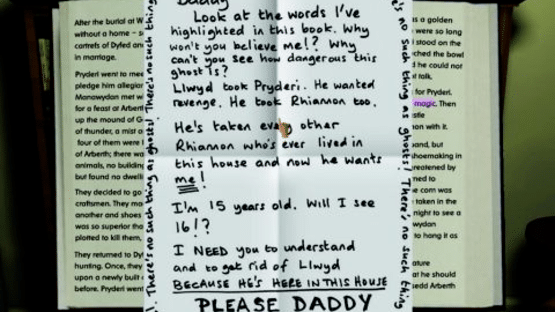 After the burial at W
without a home – s
cantrefs of Dyfed an
in marriage.
Pryderi went to me
pledge him allegian
Manawydan met w
for a feast at Arbert
up the mound of G
of thunder, a mist a
four of them were
of Arberth; there wa
animals, no building
but found no dwelli
They decided to go
craftsmen. They ma
another and shoes
was so superior tha
plotted to kill them,
They returned to Dyf
hunting. Once, they
upon a newly built
before. Pryderi went
There's no such thing as ghosts! There's no such thing
Daddy
Look at the words I've
highlighted in this book. Why
won't you believe me!? Why
can't you see how dangerous this
ghost is?
Llwyd took Pryderi. He wanted
revenge. He took Rhiannon too.
He's taken every other
Rhiannon who's ever lived in
this house and now he wants
me!
I'm 15 years old. Will I see
16!?
I NEED you to understand
and to get rid of Llwyd
BECAUSE HE'S HERE IN THIS HOUSE
PLEASE DADDY
There's no such thing as ghosts! There's no such thing
as a golden
were so long
stood on the
ched the bowl
he could not
talk.
for Pryderi,
magic. Then
stle
on with it.
band, but
shoemaking in
reatened by
ned to
e corn was
taken in the
night to see a
d to
to hang it as
ature
at he should
sedd Arberth